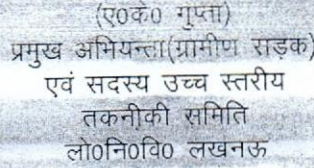 (ए०के० गुप्ता)
प्रमुख अभियन्ता(ग्रामीण सड़क)
एवं सदस्य उच्च स्तरीय
तकनीकी समिति
लो०नि०वि० लखनऊ